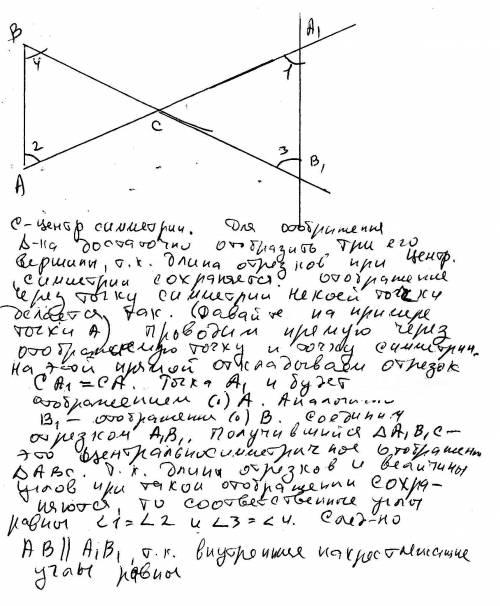 B
4
2
A
C
A₁
1
3
B₁
C - центр симметрии. Для отображения
Δ-ка достаточно отобразить три его
вершины, т.к. длина отрезков при центр.
симметрии сохраняется. Отображение
через точку симметрии некоей точки
делается так. (Давайте на примере
точки А) Проводим прямую через
отображаемую точку и точку симметрии.
На этой прямой откладываем отрезок
CA₁ = CA. Точка А₁ и будет
отображением (·) А. Аналогично
B₁ - отображение (·) B. Соединим
отрезком A₁B₁, Получившийся ΔA₁B₁C -
это центральносимметричное отображение
ΔABC. Т.к. длины отрезков и величины
углов при таком отображении сохра-
няются, то соответственные углы
равны ∠1=∠2 и ∠3=∠4. След-но
AB || A₁B₁, т.к. внутренние накрестлежащие
углы равны